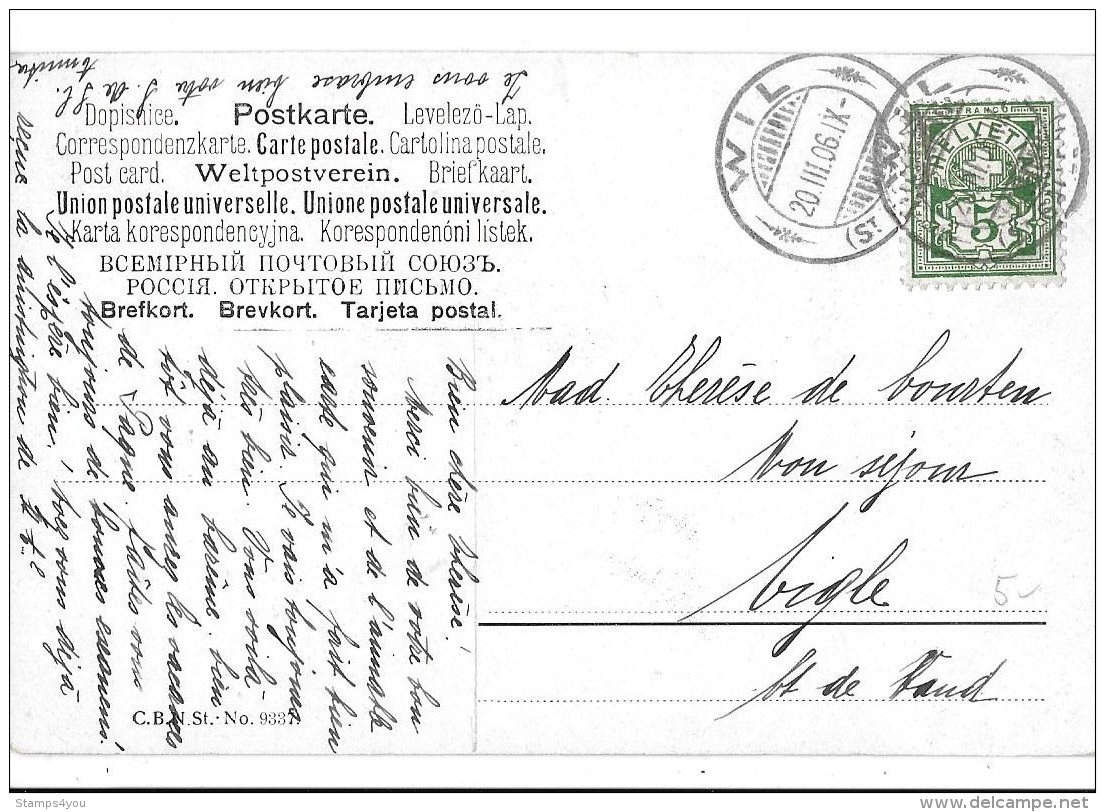 Dopisnice. Postkarte. Levelező-Lap.
Correspondenzkarte. Carte postale. Cartolina postale.
Post card. Weltpostverein. Briefkaart.
Union postale universelle. Unione postale universale.
Karta korespondencyjna. Korespondenční lístek.
ВСЕМІРНЫЙ ПОЧТОВЫЙ СОЮЗЪ.
РОССІЯ. ОТКРЫТОЕ ПИСЬМО.
Brefkort. Brevkort. Tarjeta postal.
WIL
20.III.06.IX-
(ST
WIL
FRANCO
HELVETIA
5
Mad. Thérèse de Courten
Mon séjour
Aigle
Ct de Vaud
5
Bien chère Thérèse!
Merci bien de votre bon
souvenir et de l'aimable
carte qui m'a fait bien
plaisir. Je vais toujours
très bien. Vous voilà
déjà au carême, bien
tôt vous aurez les vacances
de Pâques. faites vous
toujours de bonnes examens!
Je l'espère bien,
déjà
reçue la
de
Je vous embrasse bien votre J. de St.
C.B.N.St.-No. 9337.
Stamps4you
delcampe.net